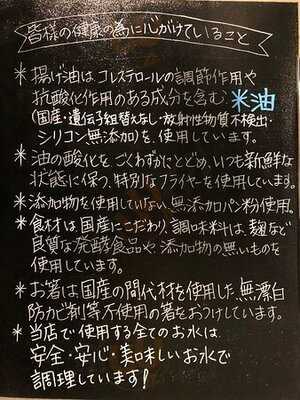 皆様の健康の為に心がけていること
＊揚げ油はコレステロールの調節作用や
抗酸化作用のある成分を含む 米油
(国産・遺伝子組替えなし・放射性物質不検出・
シリコン無添加)を、使用しています。
＊油の酸化をごくわずかにとどめ、いつも新鮮な
状態に保つ、特別なフライヤーを使用しています。
＊添加物を使用していない、無添加パン粉使用。
＊食材は国産にこだわり、調味料は、麹など
良質な発酵食品や添加物の無いものを
使用しています。
＊お箸は国産の間伐材を使用した、無漂白
防カビ剤等不使用の箸をおつけしています。
＊当店で使用する全てのお水は、
安全・安心・美味しいお水で
調理しています!